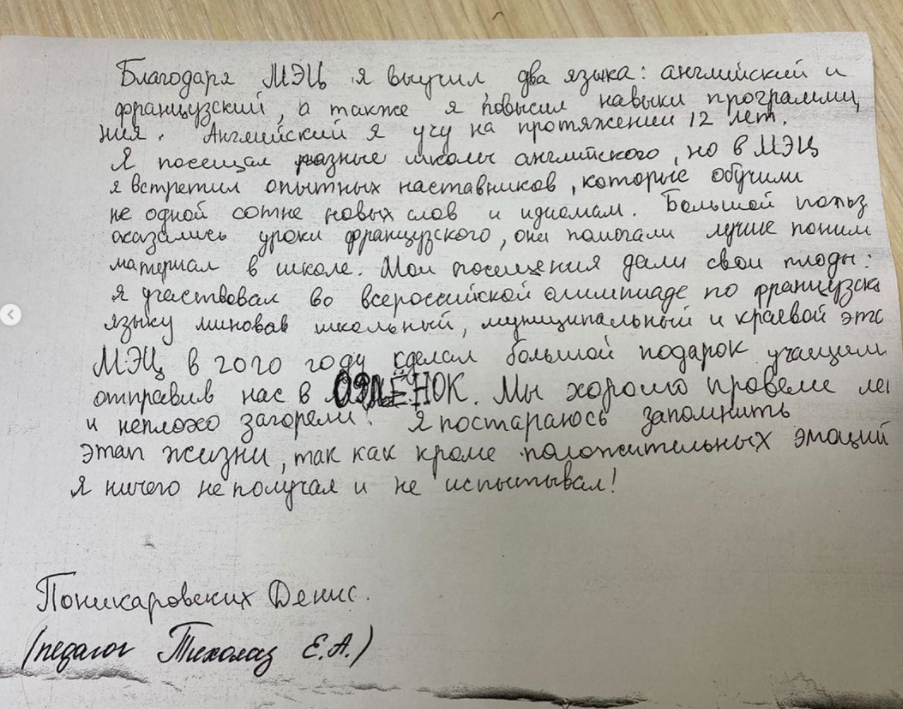 Благодаря МЭЦ я выучил два языка: английский и
французский, а также я повысил навыки программи
ния. Английский я учу на протяжении 12 лет.
Я посещал разные школы английского, но в МЭЦ
я встретил опытных наставников, которые обучили
не одной сотне новых слов и идиомам. Большой польз
оказались уроки французского, они помогали лучше поним
материал в школе. Мои посещения дали свои плоды:
я участвовал во всероссийской олимпиаде по французска
языку миновав школьный, муниципальный и краевой эта
МЭЦ в 2020 году сделал большой подарок учащим
отправив нас в ОРЛЁНОК. Мы хорошо провели ле
и неплохо загорели! Я постараюсь запомнить
этап жизни, так как кроме положительных эмоций
я ничего не получал и не испытывал!
Поникаровских Денис.
(педагог Тихолаз Е.А.)